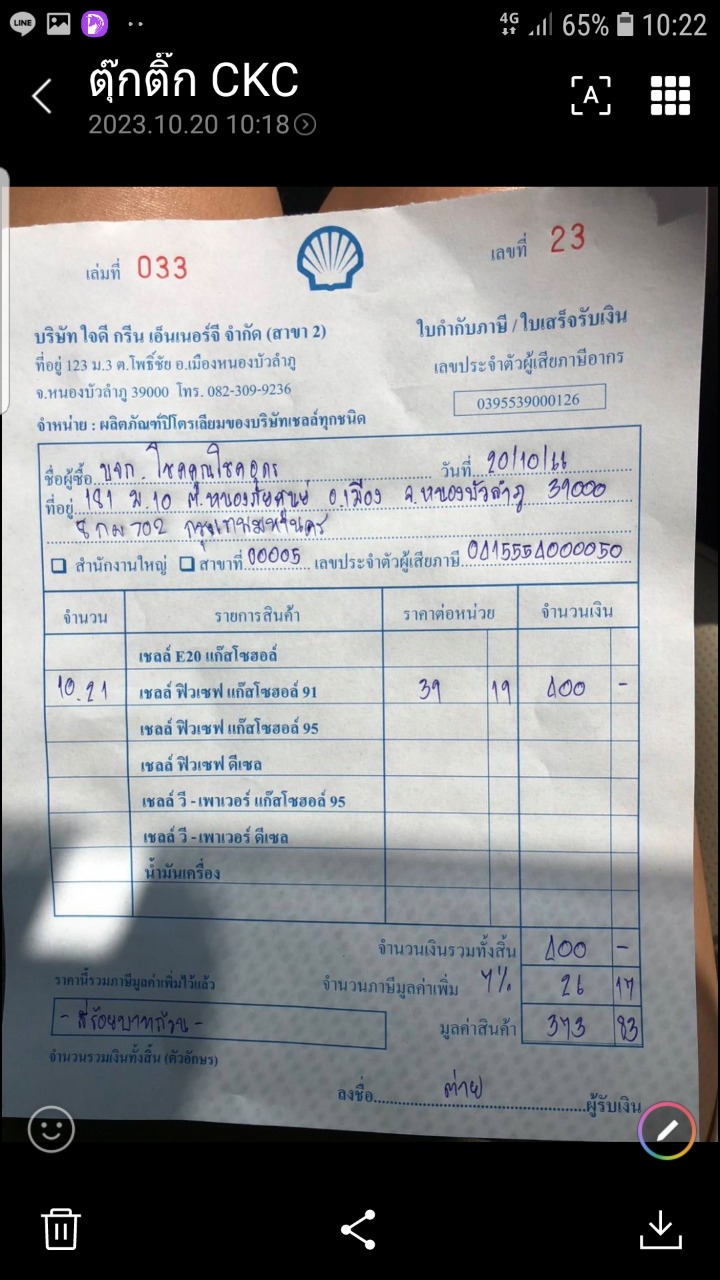 LINE 4G 65% 10:22
ตุ๊กติ๊ก CKC
2023.10.20 10:18
A
เล่มที่ 033
เลขที่ 23
บริษัท ใจดี กรีน เอ็นเนอร์จี จำกัด (สาขา 2)
ใบกำกับภาษี / ใบเสร็จรับเงิน
ที่อยู่ 123 ม.3 ต.โพธิ์ชัย อ.เมืองหนองบัวลำภู
เลขประจำตัวผู้เสียภาษีอากร
จ.หนองบัวลำภู 39000 โทร. 082-309-9236
0395539000126
จำหน่าย : ผลิตภัณฑ์ปิโตรเลียมของบริษัทเชลล์ทุกชนิด
ชื่อผู้ซื้อ บจก. โชคคูณโชค วันที่ 20/10/66
ที่อยู่ 181 ม.10 ต.หนองภัยศูนย์ อ.เมือง จ.หนองบัวลำภู 39000
702 กรุงเทพมหานคร
สำนักงานใหญ่ สาขาที่ 00005 เลขประจำตัวผู้เสียภาษี 0415554000050
จำนวน รายการสินค้า ราคาต่อหน่วย จำนวนเงิน
เชลล์ E20 แก๊สโซฮอล์
10.21 เชลล์ ฟิวเซฟ แก๊สโซฮอล์ 91 39 19 400 -
เชลล์ ฟิวเซฟ แก๊สโซฮอล์ 95
เชลล์ ฟิวเซฟ ดีเซล
เชลล์ วี - เพาเวอร์ แก๊สโซฮอล์ 95
เชลล์ วี - เพาเวอร์ ดีเซล
น้ำมันเครื่อง
จำนวนเงินรวมทั้งสิ้น 400 -
ราคานี้รวมภาษีมูลค่าเพิ่มไว้แล้ว จำนวนภาษีมูลค่าเพิ่ม 7% 26 17
- สี่ร้อยบาทถ้วน - มูลค่าสินค้า 373 83
จำนวนรวมเงินทั้งสิ้น (ตัวอักษร)
ลงชื่อ ต่าย ผู้รับเงิน